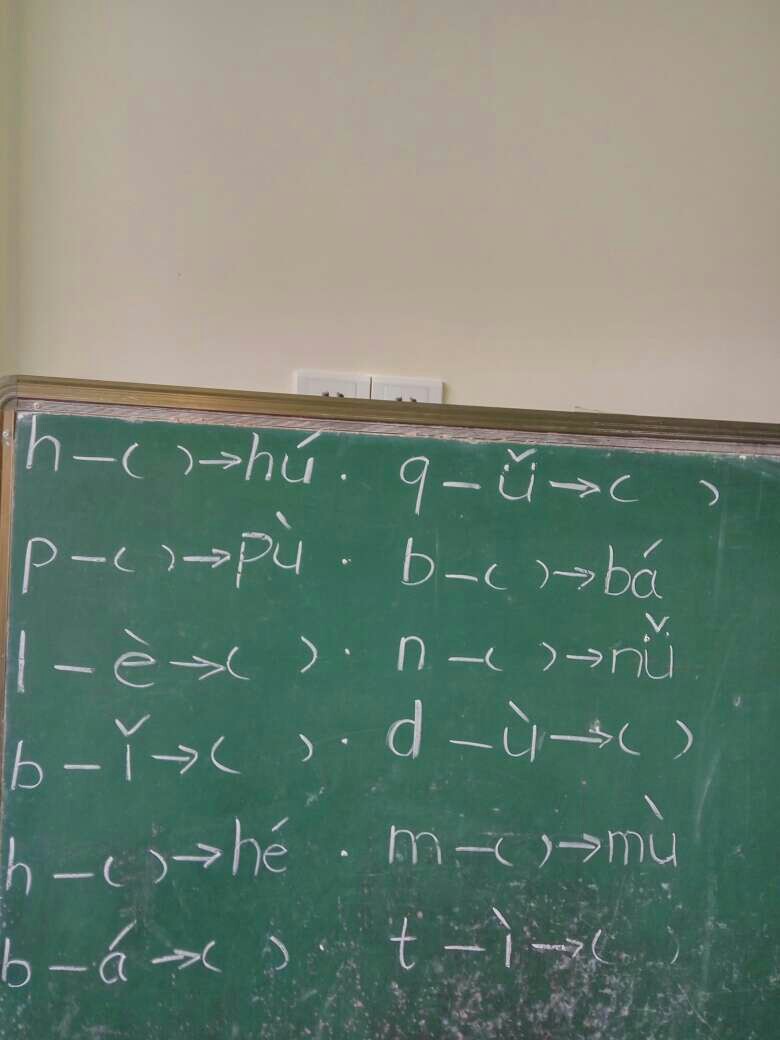 h－( )→hú. q－ǚ→( )
p－( )→pù. b－( )→bá
l－è→( ). n－( )→nǚ
b－ǐ→( ). d－ù→( )
h－( )→hé. m－( )→mù
b－á→( ). t－ì→( )